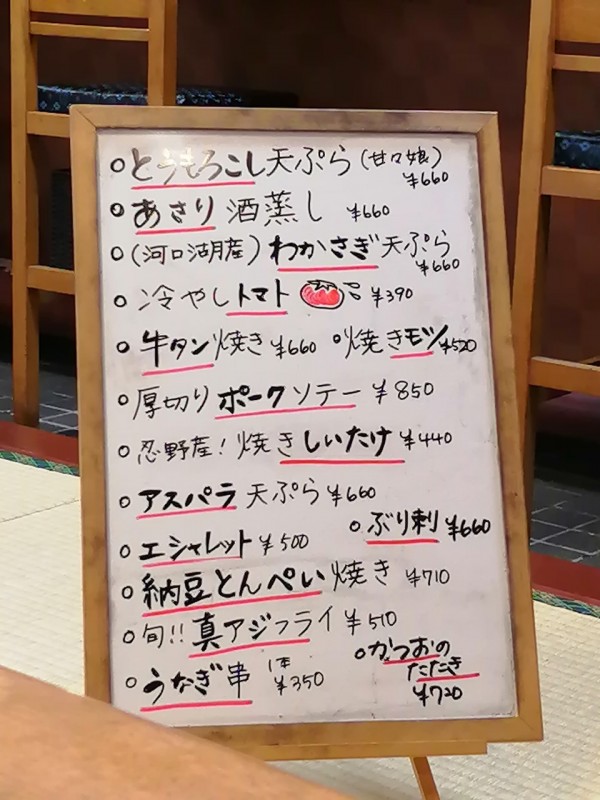 ○とうもろこし天ぷら(甘々娘) ¥660
○あさり酒蒸し ¥660
○(河口湖産)わかさぎ天ぷら ¥660
○冷やしトマト ¥390
○牛タン焼き¥660 ○焼きモツ¥520
○厚切りポークソテー ¥850
○忍野産!焼きしいたけ ¥440
○アスパラ天ぷら¥660
○ぶり刺¥660
○エシャレット¥500
○納豆とんぺい焼き ¥710
○旬!!真アジフライ¥510
○うなぎ串 1本¥350
○かつおの
たたき
¥720